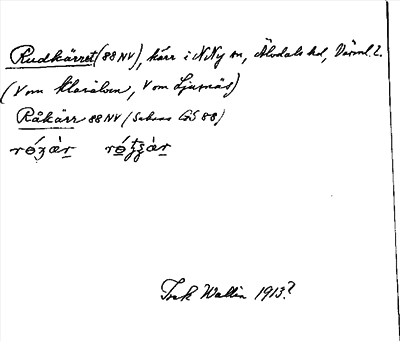 Rudkärret (88 NV), kärr i N Ny sn, Älvdals hd, Värml. l.
(V om Klarälven, V om Ljusnäs)
Råkärr 88 NV (Saknas GS 88)
Wallin 1913?